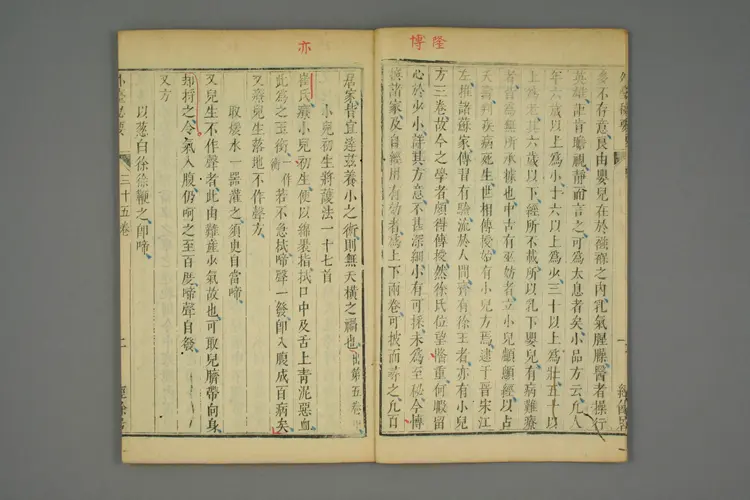 隆博
意不存意良由嬰兒在於襁褓之內乳氣腥臊醫者操行
英雄詎肯瞻視靜而言之可為太息者矣小品方云凡人
年六歲以上為小十六以上為少三十以上為壯五十以
上為老其六歲以下經所不載所以乳下嬰兒有病難療
者皆為無所承據也中古有巫妨者立小兒顱顖經以占
夭壽判疾病死生世相傳授始有小兒方焉逮于晉宋江
左推諸蘇家傳習有驗流於人間齊有徐王者亦有小兒
方三卷故今之學者頗得傳授然徐氏位望隆重何暇留
心於少小詳其方意不甚深細少有可採未為至秘今博
採諸家及自經用有效者為上下兩卷可披而尋之凡百
亦
居家皆宜達茲養小之術則無夭橫之禍也出第五卷中
小兒初生將護法一十七首
崔氏療小兒初生便以綿裹指拭口中及舌上青泥惡血
此為之玉衡一作衘若不急拭啼聲一發即入腹成百病矣
又療兒生落地不作聲方
取煖水一器灌之須臾自當啼
又兒生不作聲者此由難產少氣故也可取兒臍帶向身
却捋之令氣入腹仍呵之至百度啼聲自發
又方
以葱白徐徐鞭之即啼
外臺秘要 三十五卷